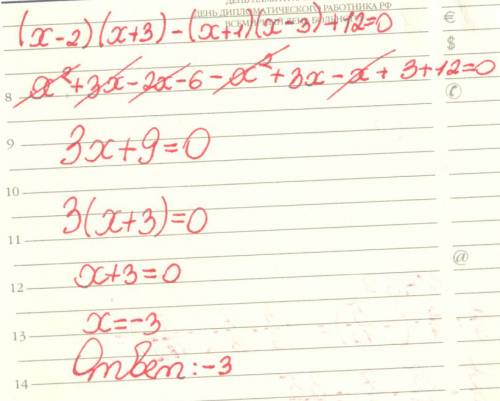 ДЕНЬ ДИПЛОМАТИЧЕСКОГО РАБОТНИКА РФ
(x-2)(x+3)-(x+1)(x-3)+12=0
€
$
8 x²+3x-2x-6-x²+3x-x+3+12=0
✆
9 3x+9=0
10
3(x+3)=0
11
@
x+3=0
12
x=-3
13
Ответ:-3
14